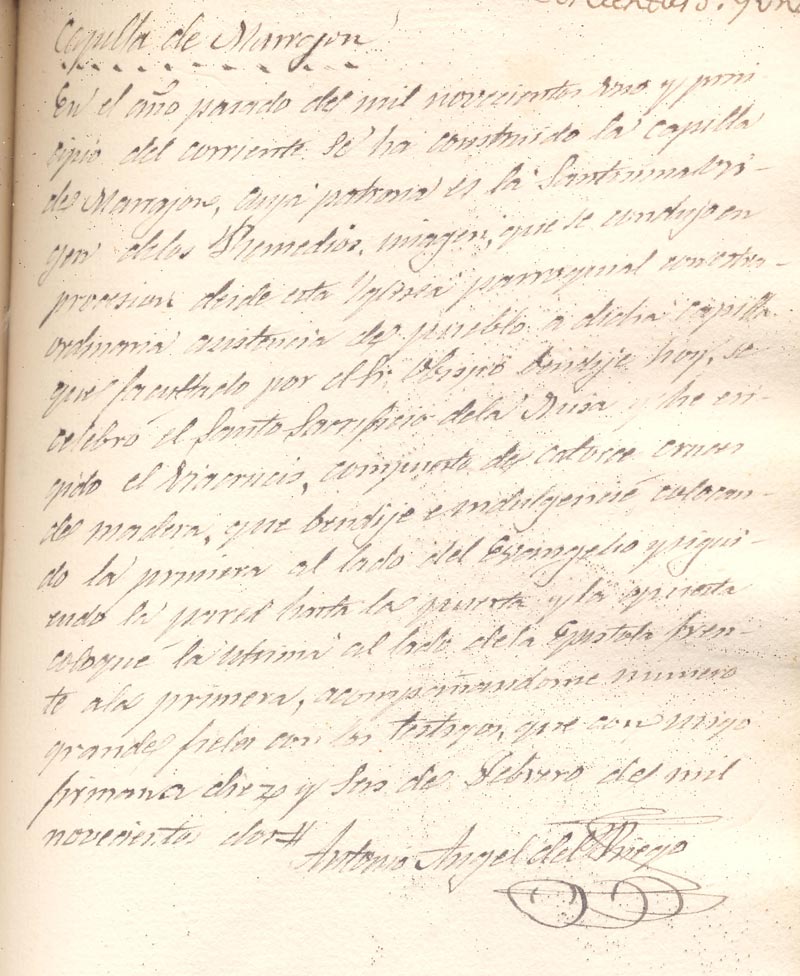 Capilla de Marrajon
En el año pasado de mil novecientos uno y prin-
cipio del corriente se ha construido la capilla
de Marrajon, cuya patrona es la Santisima Vir-
gen de los Remedios, imagen, que se condujo en
procesion desde esta Yglesia parroquial con estra-
ordinaria asistencia de pueblo a dicha capilla
que facultado por el Sr. Obispo bendije hoy, se
celebró el Santo Sacrificio de la Misa y he eri-
gido el Viacrucis, compuesto de catorce cruces
de madera, que bendije e indulgencié colocan-
do la primera al lado del Evangelio y sigui-
endo la pared hasta la puerta y la
coloqué la ultima al lado de la Epistola fren-
te a la primera, acompañandome numero
grande fieles con los testigos, que con migo
firman a diez y de Febrero de mil
novecientos dos#
Antonio Angel del Riego